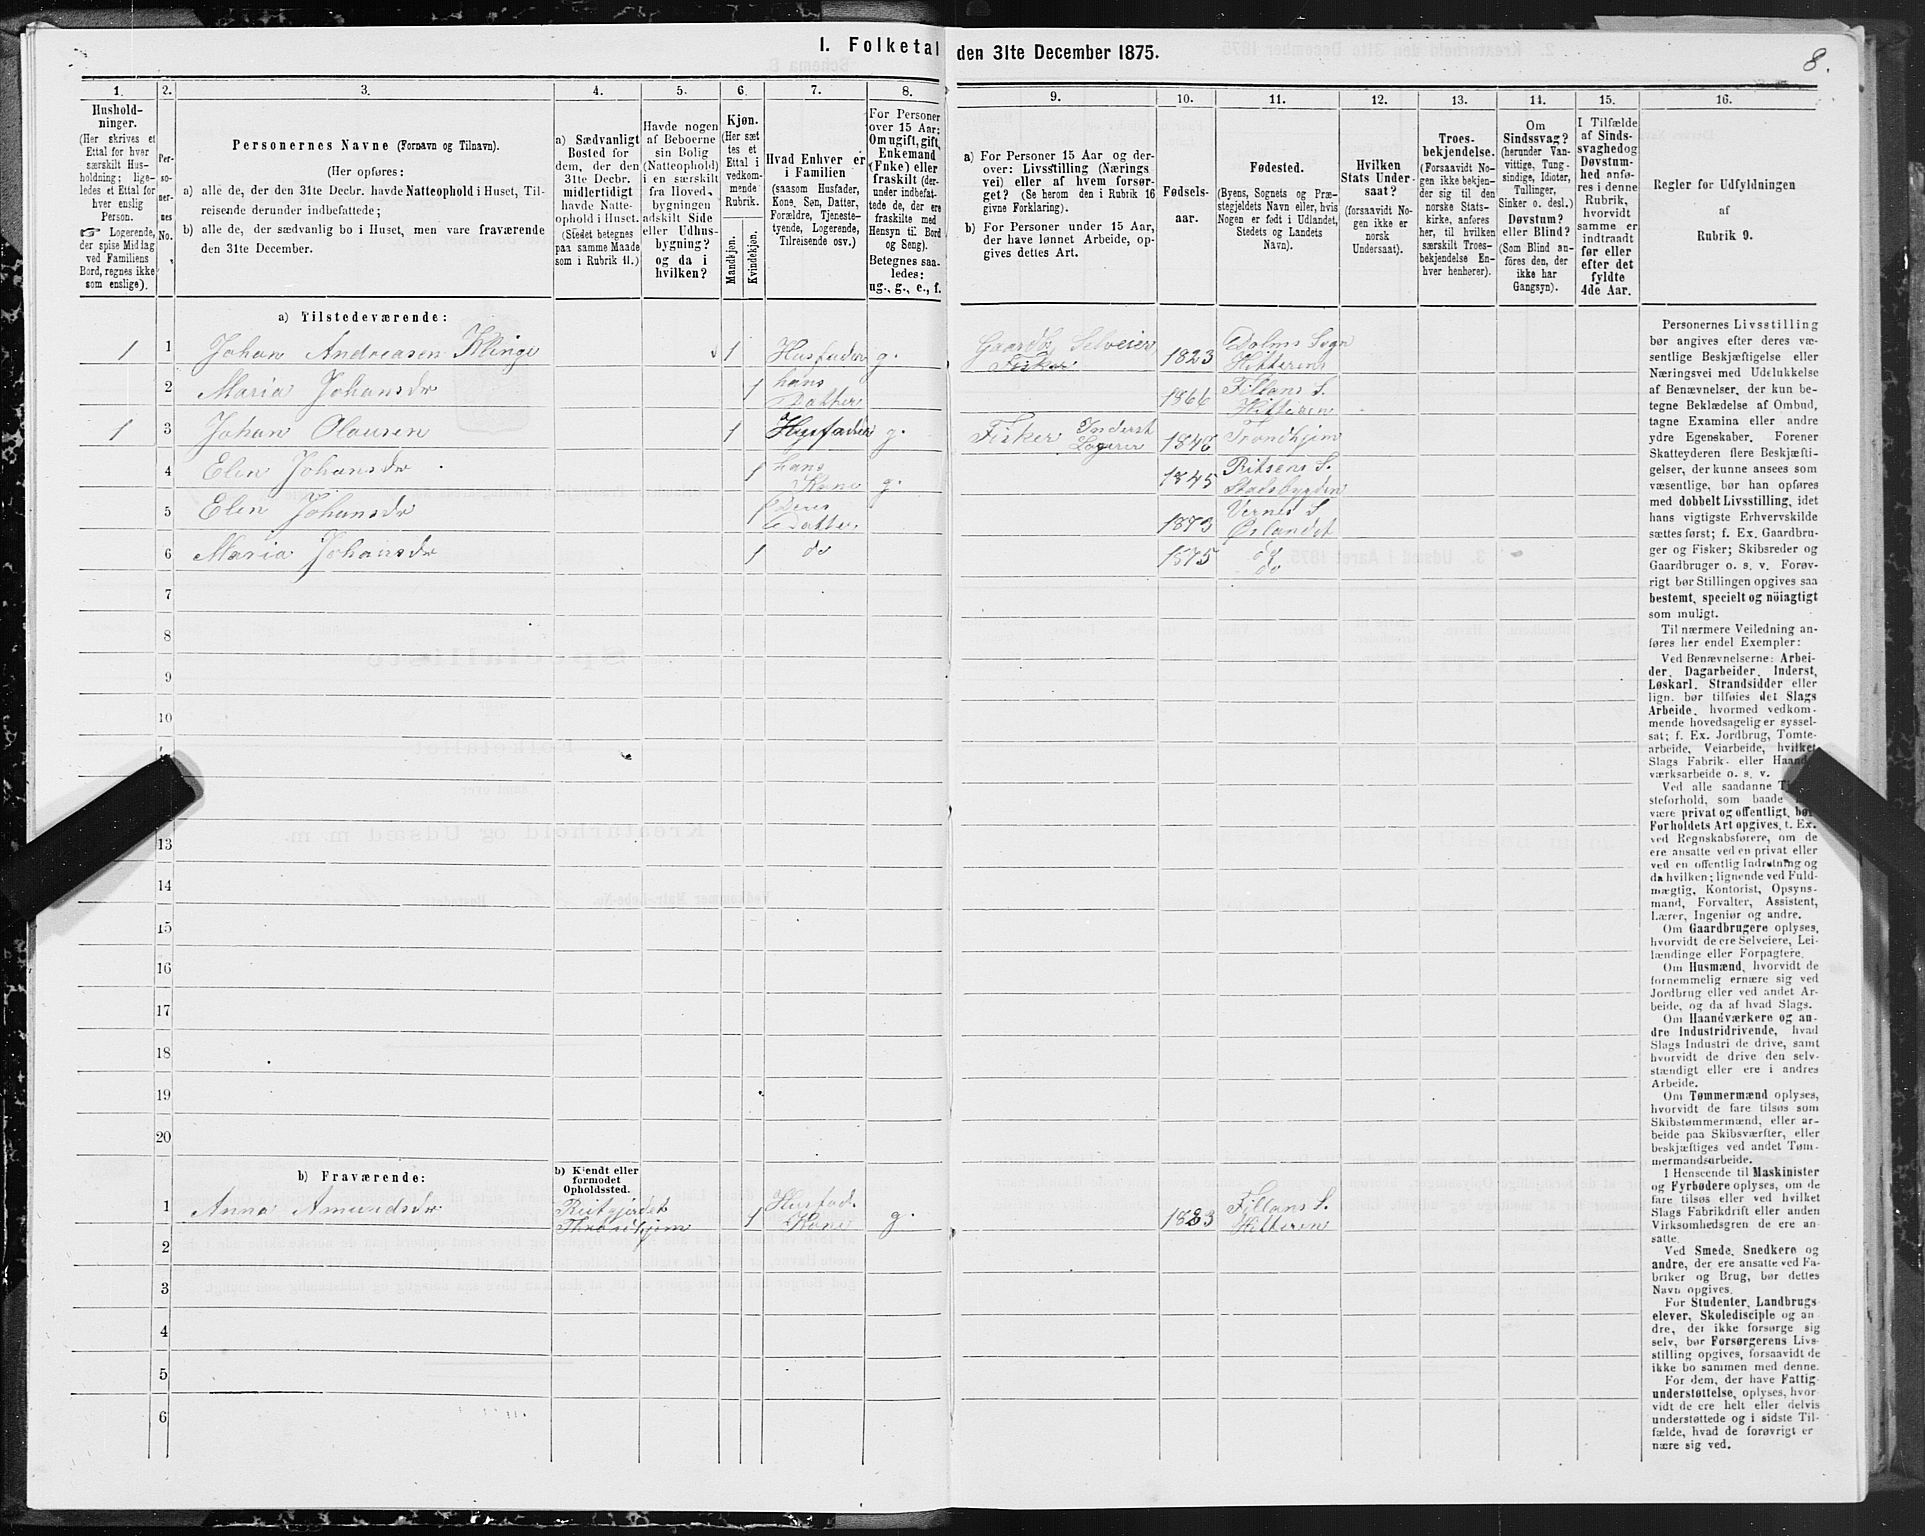 I. Folketal den 31te December 1875.
8.
1.
2.
3.
4.
5.
6.
7.
8.
9.
10.
11.
12.
13.
14.
15.
16.
Hushold-
ninger.
(Her skrives et
Ettal for hver
særskilt Hus-
holdning; lige-
ledes et Ettal for
hver enslig
Person.
☞ Logerende,
der spise Middag
ved Familiens
Bord, regnes ikke
som enslige).
Per-
so-
ner-
nes
No.
Personernes Navne (Fornavn og Tilnavn).
(Her opføres:
a) alle de, der den 31te Decbr. havde Natteophold i Huset, Til-
reisende derunder indbefattede;
b) alle de, der sædvanlig bo i Huset, men vare fraværende
den 31te December.
a) Sædvanligt
Bosted for
dem, der den
31te Decbr.
midlertidigt
havde Natte-
ophold i Huset.
(Stedet betegnes
paa samme Maade
som i Rubrik 11.)
Havde nogen
af Beboerne
sin Bolig
(Natteophold)
i en særskilt
fra Hoved-
bygningen
adskilt Side
eller Udhus-
bygning?
og da i
hvilken?
Kjøn.
(Her sæt
tes et
Ettal i
vedkom-
mende
Rubrik.
Mandkjøn.
Kvindekjøn.
Hvad Enhver er
i Familien
(saasom Husfader,
Kone, Søn, Datter,
Forældre, Tjeneste-
tyende, Logerende,
Tilreisende osv.)
For Personer
over 15 Aar:
Om ugift, gift,
Enkemand
(Enke) eller
fraskilt (der-
under indbefat-
tede de, der ere
fraskilte med
Hensyn til Bord
og Seng).
Betegnes saa-
ledes:
ug., g., e., f.
a) For Personer 15 Aar og der-
over: Livsstilling (Nærings
vei) eller af hvem forsør-
get? (Se herom den i Rubrik 16
givne Forklaring).
b) For Personer under 15 Aar,
der have lønnet Arbeide, op-
gives dettes Art.
Fødsels-
aar.
Fødested.
(Byens, Sognets og Præ-
stegjeldets Navn eller, hvis
Nogen er født i Udlandet,
Stedets og Landets
Navn).
Hvilken
Stats Under
saat?
(forsaavidt No-
gen ikke er
norsk
Undersaat).
Troes-
bekjendelse.
(Forsaavidt No-
gen ikke bekjen-
der sig til den
norske Stats-
kirke, anføres
her, til hvilken
særskilt Troes-
bekjendelse En-
hver henhører).
Om
Sindssvag?
(herunder Van-
vittige, Tung-
sindige, Idioter,
Tullinger,
Sinker o. desl.)
Døvstum?
eller Blind?
(Som Blind an-
føres den, der
ikke har
Gangsyn).
I Tilfælde
af Sinds-
svaghed og
Døvstum-
hed anfø-
res i denne
Rubrik,
hvorvidt
samme er
indtraadt
før eller
efter det
fyldte
4de Aar.
Regler for Udfyldningen
af
Rubrik 9.
a) Tilstedeværende:
1 1 Johan Andreasen Klinge 1 Husfader g. Gaardb. Selveier, Fisker 1823 Dolms Sogn Hitteren
2 Maria Johansdr 1 hans Datter 1866 Fillans S. Hitteren
1 3 Johan Olausen 1 Husfader g. Fisker Inderst Logerer 1846 Trondhjem
4 Elen Johansdr 1 hans Kone g. 1845 Ritsens S. Stadsbygden
5 Elen Johansdr 1 Deres Datter 1873 Vernes S Ørlandet
6 Maria Johansdr 1 do 1875 do
7
8
9
10
13
14
15
16
17
18
19
20
b) Fraværende:
b) Kjendt eller
formodet
Opholdssted.
1 Anna Amundsdr Throndhjem 1 Husfad. Kone g. 1823 Fillans S. Hitteren
2
3
4
5
6
Personernes Livsstilling
bør angives efter deres væ-
sentlige Beskjæftigelse eller
Næringsvei med Udelukkelse
af Benævnelser, der kun be-
tegne Beklædelse af Ombud,
tagne Examina eller andre
ydre Egenskaber. Forener
Skatteyderen flere Beskjæfti-
gelser, der kunne ansees som
væsentlige, bør han opføres
med dobbelt Livsstilling, idet
hans vigtigste Erhvervskilde
sættes først; f. Ex. Gaardbru-
ger og Fisker; Skibsreder og
Gaardbruger o. s. v. Forøv-
rigt bør Stillingen opgives saa
bestemt, specielt og nöiagtigt
som muligt.
Til nærmere Veiledning an-
føres her endel Exempler:
Ved Benævnelserne: Arbei-
der, Dagarbeider, Inderst,
Løskarl, Strandsidder eller
lign. bør tilføies det Slags
Arbeide, hvormed vedkom-
mende hovedsagelig er syssel-
sat; f. Ex. Jordbrug, Tomte-
arbeide, Veiarbeide, hvilket
Slags Fabrik- eller Haand-
værksarbeide o. s. v.
Ved alle saadanne
steforhold, som baade
være privat og offentligt, bør
Forholdets Art opgives, t. Ex.
ved Regnskabsførere, om de
ere ansatte ved en privat eller
ved en offentlig Indretning og
da hvilken; lignende ved Fuld-
mægtig, Kontorist, Opsyns-
mand, Forvalter, Assistent,
Lærer, Ingeniør og andre.
Om Gaardbrugere oplyses,
hvorvidt de ere Selveiere, Lei-
lændinge eller Forpagtere.
Om Husmænd, hvorvidt de
fornemmelig ernære sig ved
Jordbrug eller ved andet Ar-
beide, og da af hvad Slags.
Om Haandværkere og an-
dre Industridrivende, hvad
Slags Industri de drive, samt
hvorvidt de drive den selv-
stændigt eller ere i andres
Arbeide.
Om Tømmermænd oplyses,
hvorvidt de fare tilsøs som
Skibstømmermænd, eller ar-
beide paa Skibsværfter, eller
beskjæftiges ved andet Tøm-
mermandsarbeide.
I Henseende til Maskinister
og Fyrbødere oplyses, om de
fare tilsøs eller ved hvilket
Slags Fabrikdrift eller anden
Virksomhedsgren de ere an-
satte.
Ved Smede, Snedkere og
andre, der ere ansatte ved Fa-
briker og Brug, bør dettes
Navn opgives.
For Studenter, Landbrugs
elever, Skoledisciple og an-
dre, der ikke forsørge sig
selv, bør Forsørgerens Livs-
stilling opgives, forsaavidt de
ikke bo sammen med denne.
For dem, der have Fattig
understøttelse, oplyses, hvor-
vidt de ere helt eller delvis
understøttede og i sidste Til-
fælde, hvad de forøvrigt er
nære sig ved.